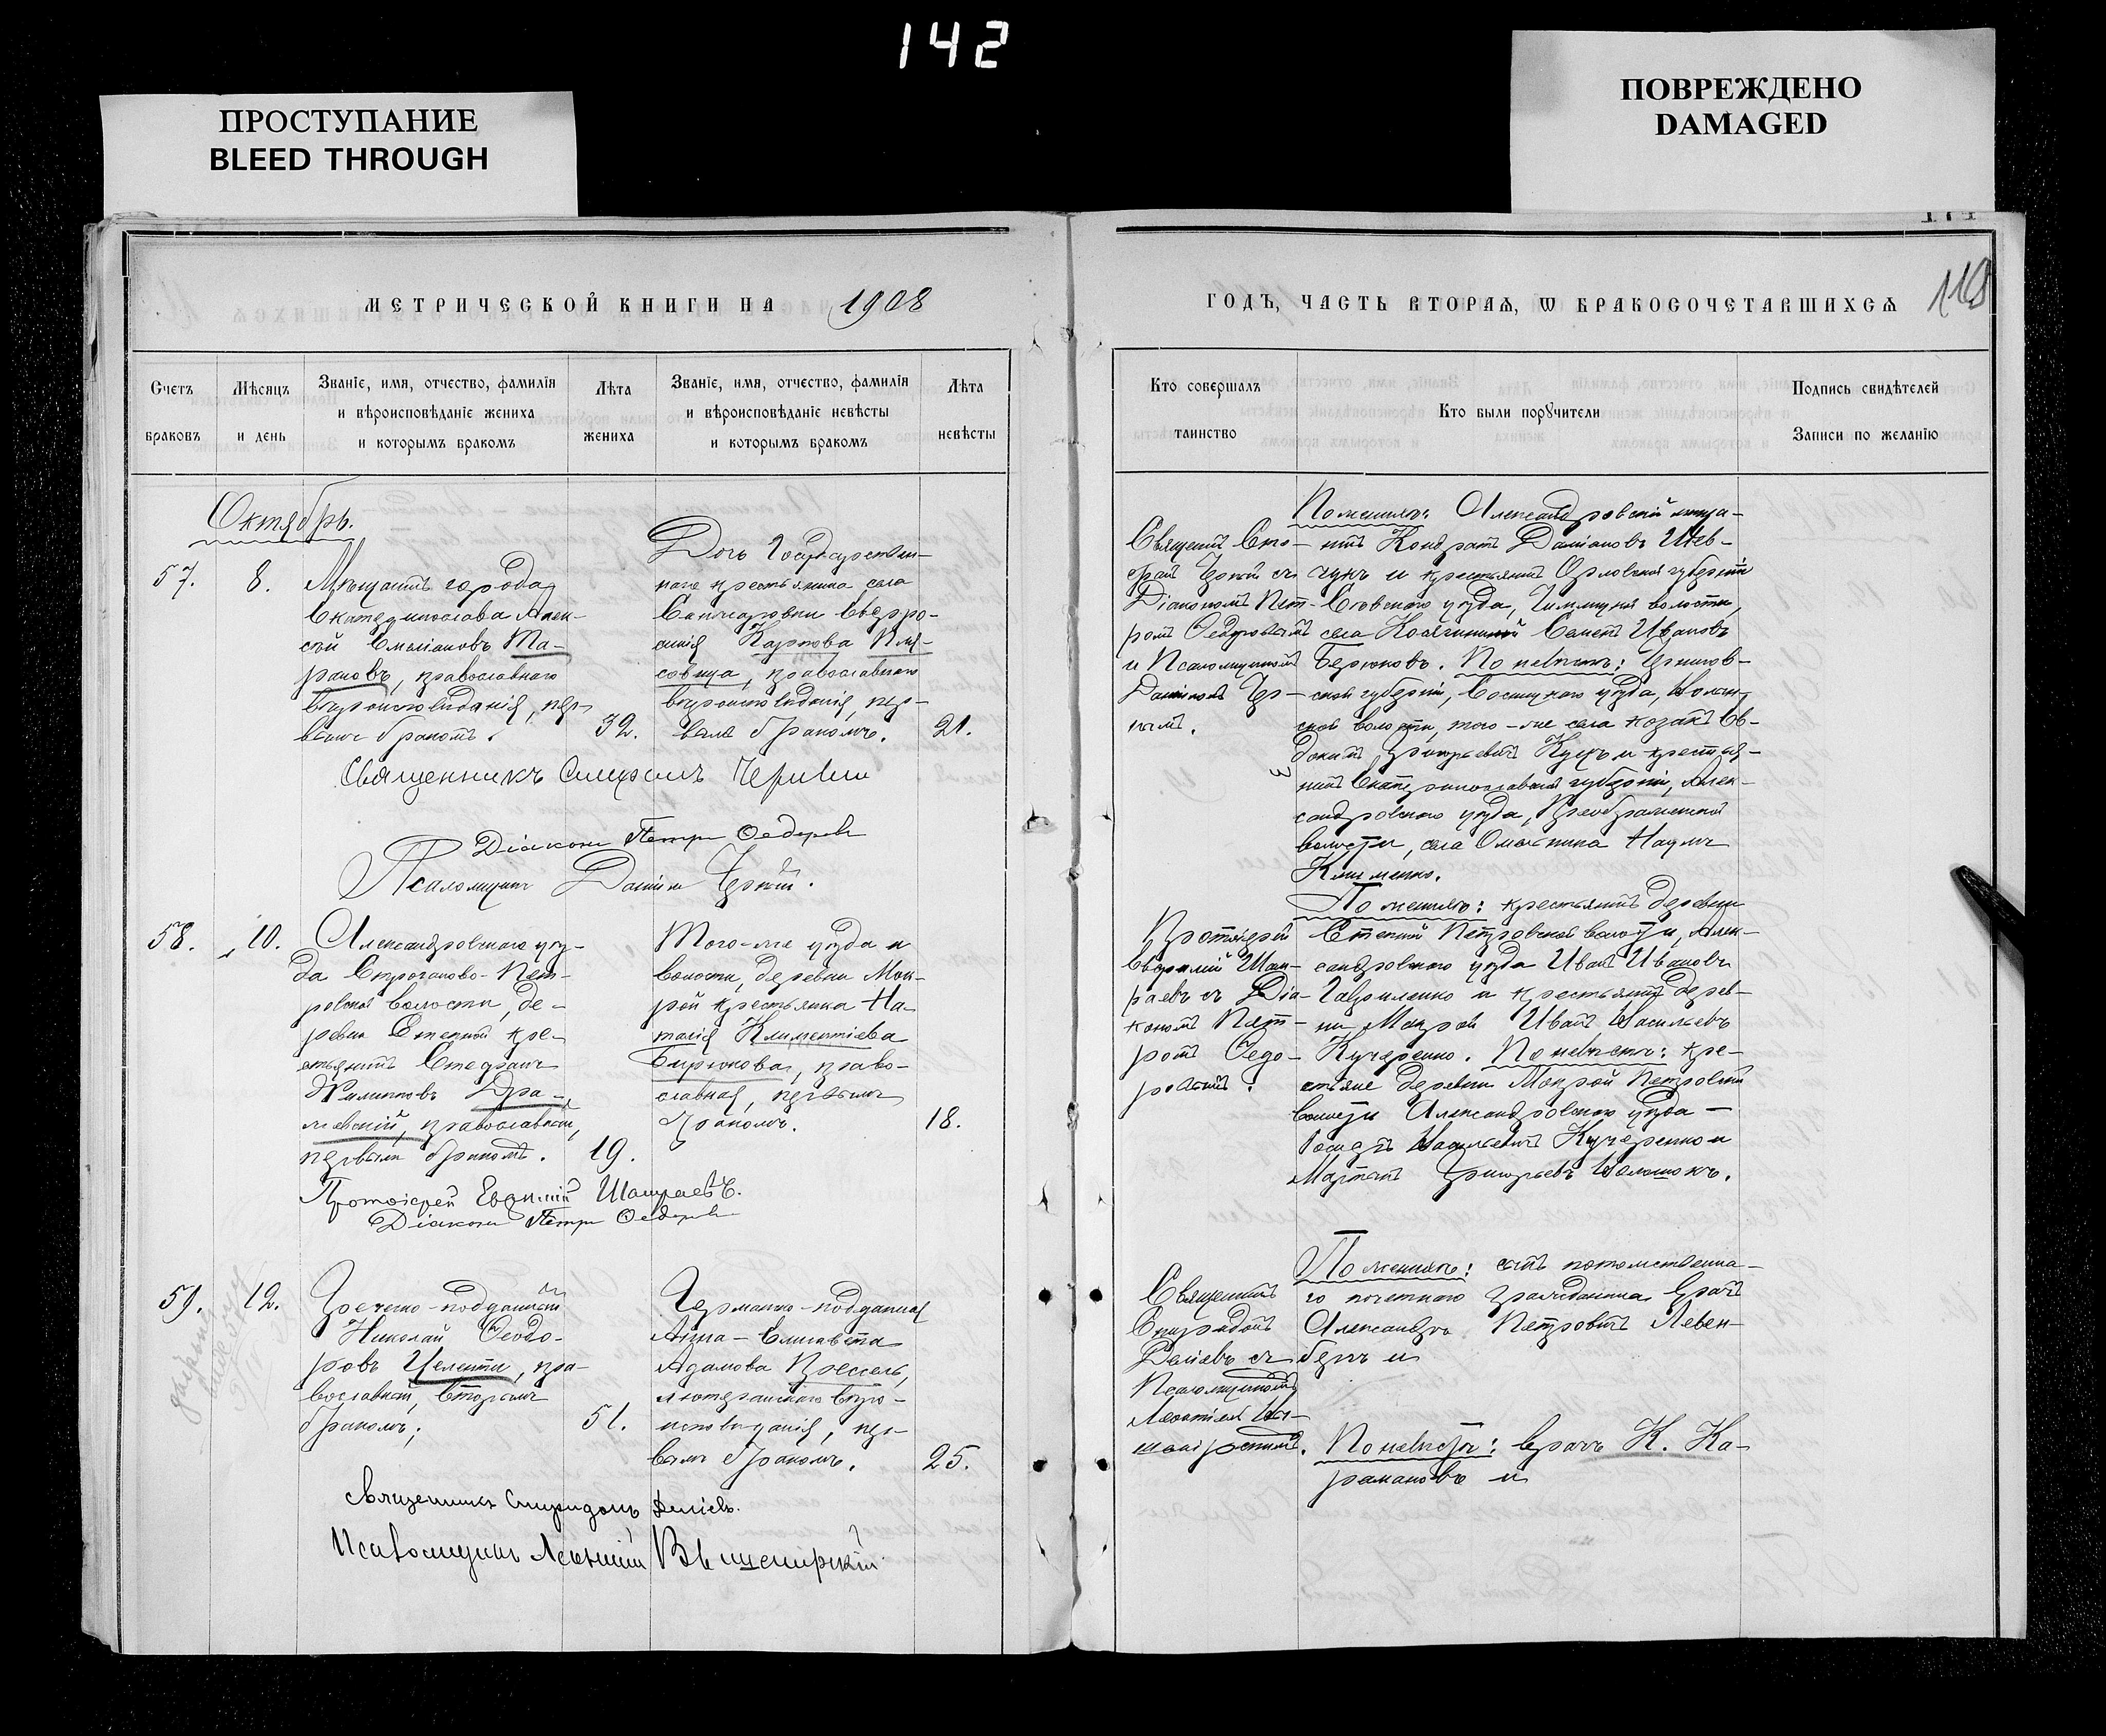 142
ПРОСТУПАНИЕ
BLEED THROUGH
ПОВРЕЖДЕНО
DAMAGED
МЕТРИЧЕСКОЙ КНИГИ НА 1908
Счетъ
браковъ
Мѣсяцъ
и день
Званіе, имя, отчество, фамилія
и вѣроисповѣданіе жениха
и которымъ бракомъ
Лѣта
жениха
Званіе, имя, отчество, фамилія
и вѣроисповѣданіе невѣсты
и которымъ бракомъ
Лѣта
невѣсты
Октябрь.
57.
8.
Мѣщанинъ города
Екатеринослава Алек-
сѣй Емеліановъ Та-
рановъ, православнаго
вѣроисповѣданія, пер-
вымъ бракомъ.
32.
Дочь Государствен-
наго крестьянина села
Евфро-
синія Карпова Пля-
совица, православнаго
вѣроисповѣданія, пер-
вымъ бракомъ.
21.
Священникъ
Діаконъ Петръ Федоровъ
Псаломщикъ Даніилъ Черный.
58.
10.
Александровскаго уѣз-
да Строганово-Пет-
ровской волости, де-
ревни Степной кре-
стьянинъ Стефанъ
Филиповъ Дра-
левскій, православный,
первымъ бракомъ.
19.
Того-же уѣзда и
волости, деревни Мок-
рой крестьянка На-
талія Климентіева
Бирюкова, право-
славная, первымъ
бракомъ.
18.
Протоіерей Евфимій Шамраевъ.
Діаконъ Петръ Федоровъ
59.
12.
Греческо-подданный
Николай Феодо-
ровъ Целенти, пра-
вославный, вторымъ
бракомъ;
51.
Германско-подданная
Анна-Елисавета
Адамова Прессель,
лютеранскаго вѣро-
исповѣданія, пер-
вымъ бракомъ.
25.
священникъ Спиридонъ Деліевъ.
Псаломщикъ Леонтій Вышемірскій
ГОДЪ, ЧАСТЬ ВТОРАЯ, Ѡ БРАКОСОЧЕТАВШИХСЯ
Кто совершалъ
таинство
Кто были порꙋчители
Подпись свидѣтелей
Записи по желанію
Священ.
Черный съ
Діакономъ Пет-
ромъ Федоровымъ
и Псаломщикомъ
Данииломъ Чер-
нымъ.
По женихѣ: Александровскій мѣща-
нинъ Кондратъ Даміановъ Шев-
чукъ и крестьянинъ Орловской губерніи
уѣзда, волости,
села Семенъ Ивановъ
Бирюковъ. По невѣстѣ: Чернигов-
ской губерніи, Сосницкаго уѣзда, Волын-
ской волости, того-же села козакъ Ев-
докимъ Григорьевичъ Куцъ и крестья-
нинъ Екатеринославской губерніи, Алек-
сандровскаго уѣзда, Преображенской
волости, села Омельника Наумъ
Клименко.
Протоіерей
Евфимій Шам-
раевъ съ Діа-
кономъ Пет-
ромъ Федо-
ровымъ.
По женихѣ: крестьянинъ деревни
Степной Петровской волости, Алек-
сандровскаго уѣзда Иванъ Ивановъ
Гавриленко и крестьянинъ дерев-
ни Мокрой Иванъ Васильевъ
Кучеренко. По невѣстѣ: кре-
стьяне деревни Мокрой Петровской
волости Александровскаго уѣзда —
Іосифъ Васильевичъ Кучеренко и
Григорьевъ Волошокъ.
Священникъ
Спиридонъ
Деліевъ съ
Псаломщикомъ
Леонтіемъ Вы-
шемірскимъ.
По женихѣ: сынъ потомственна-
го почетнаго гражданина врачъ
Александръ Петровичъ Левен-
бергъ и
По невѣстѣ: врачъ К. Ка-
рамановъ и